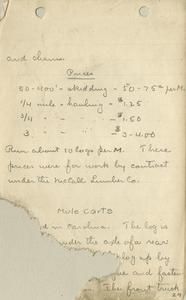 and chains.
Prices
50-400' - skidding - 50-75¢ per M.
1/4 mile - hauling - $1.25
3/4 " - " - $1.50
3 " - " - $3-4.00
Run about 10 logs per M. These
prices were for work by contract
under the McCall Lumber Co.
Mule Carts
in Carolina. The log is
under the axle of a rear
log up by
and fasten
The front truck